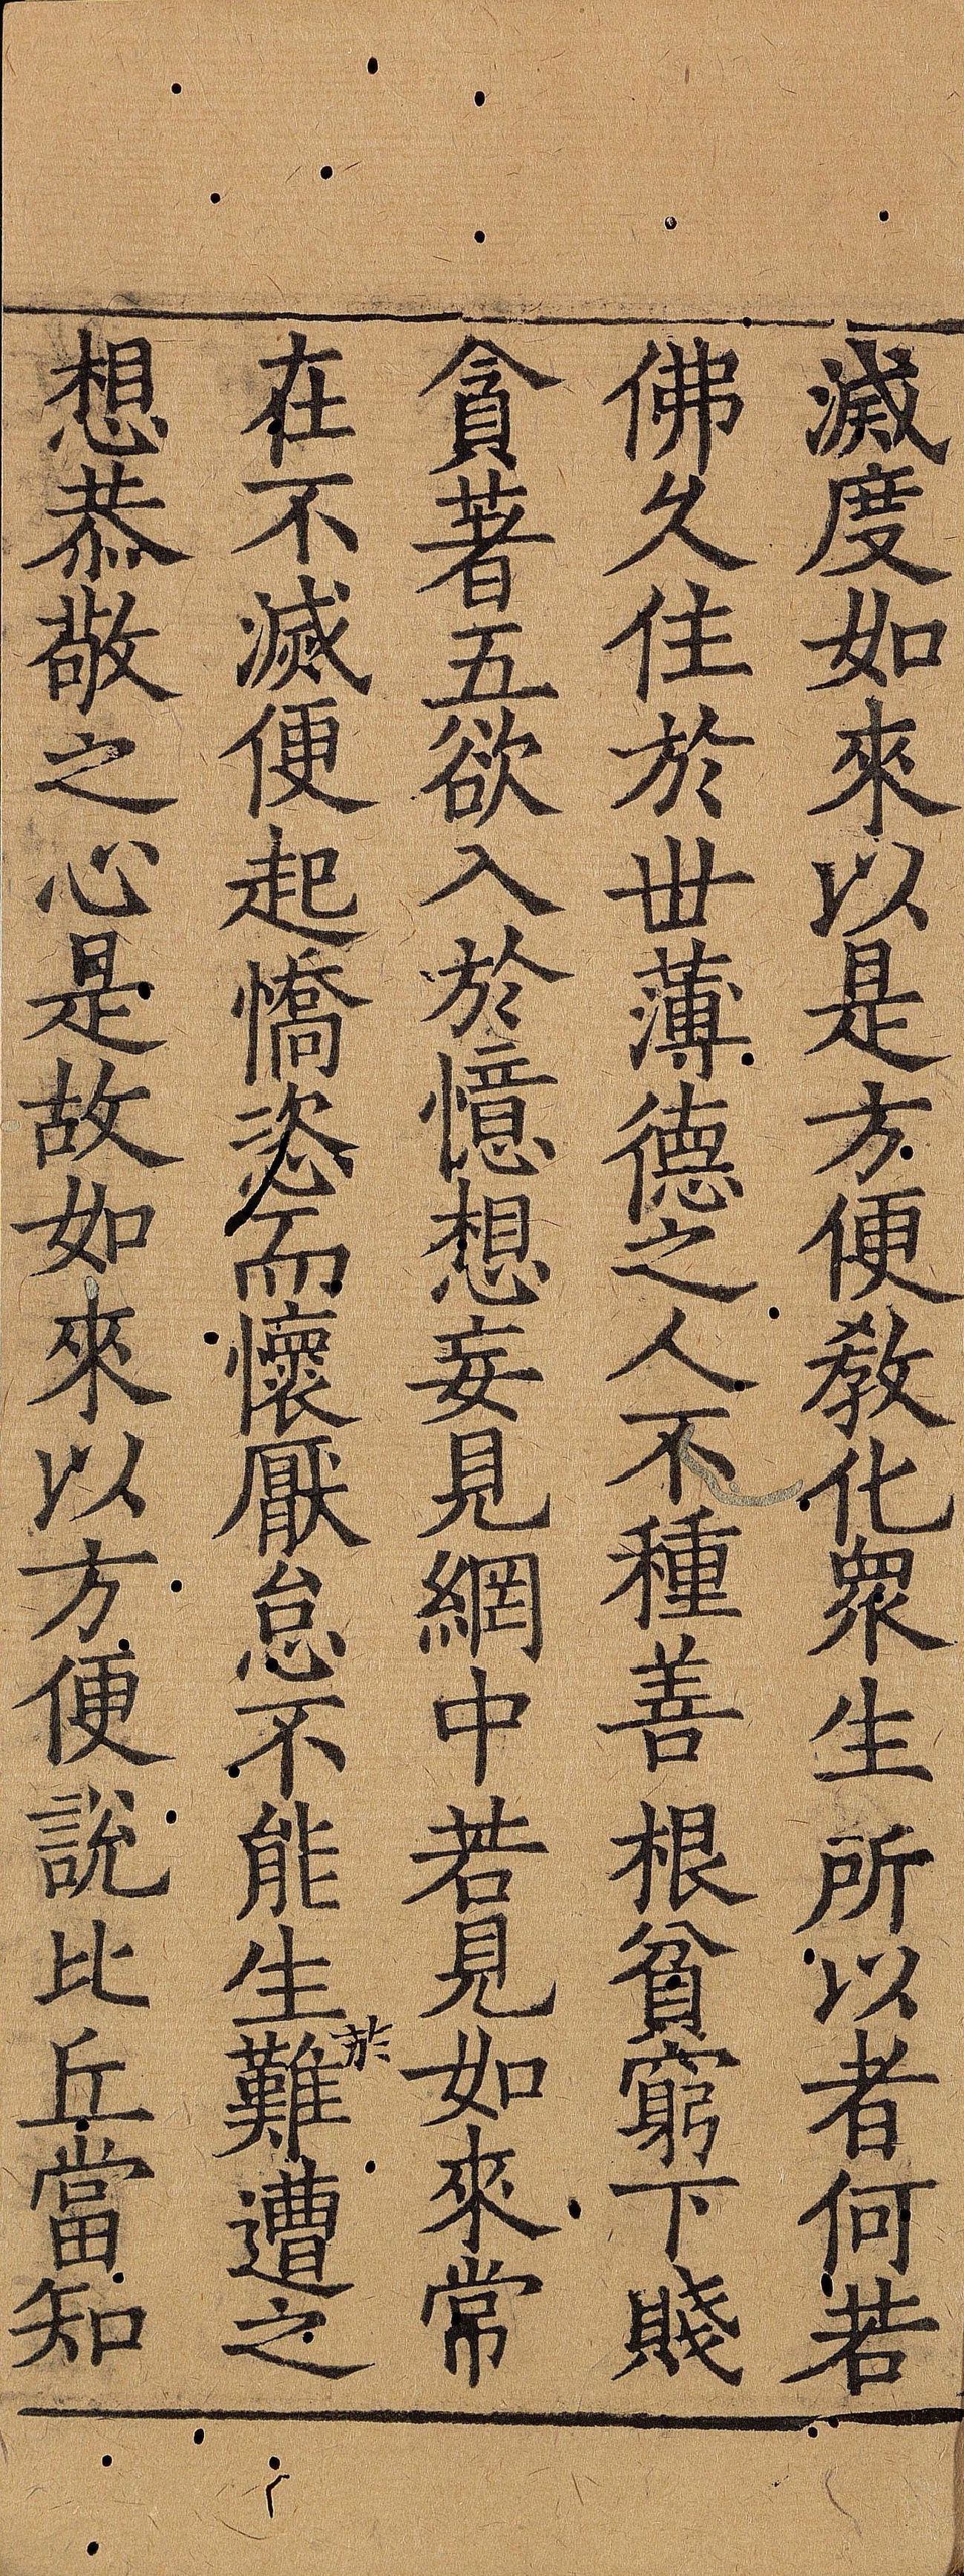 滅度如來以是方便教化衆生所以者何若
佛久住於世薄德之人不種善根貧窮下賤
貪著五欲入於憶想妄見網中若見如來常
在不滅便起憍恣而懷厭怠不能生於難遭之
想恭敬之心是故如來以方便說比丘當知